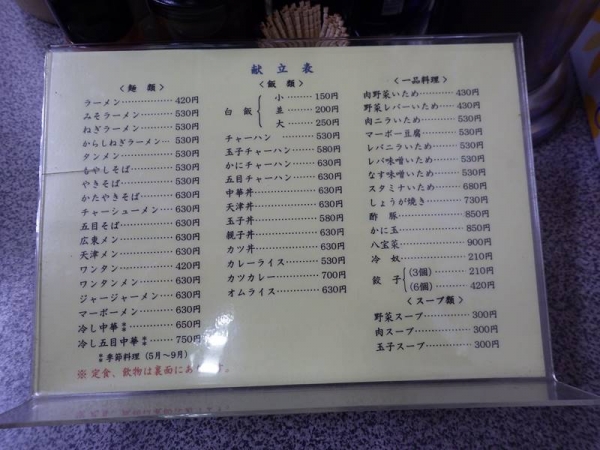 献立表
〈麺類〉
ラーメン 420円
みそラーメン 530円
ねぎラーメン 530円
からしねぎラーメン 530円
タンメン 530円
もやしそば 530円
やきそば 530円
かたやきそば 630円
チャーシューメン 630円
五目そば 630円
広東メン 630円
天津メン 630円
ワンタン 420円
ワンタンメン 630円
ジャージャーメン 630円
マーボーメン 630円
冷し中華＊ 650円
冷し五目中華＊ 750円
＊季節料理（5月〜9月）
※定食、飲物は裏面にあります。
〈飯類〉
白飯
小 150円
並 200円
大 250円
チャーハン 530円
玉子チャーハン 580円
かにチャーハン 630円
五目チャーハン 630円
中華丼 630円
天津丼 630円
玉子丼 580円
親子丼 630円
カツ丼 630円
カレーライス 530円
カツカレー 700円
オムライス 630円
〈一品料理〉
肉野菜いため 430円
野菜レバーいため 430円
肉ニラいため 530円
マーボー豆腐 530円
レバニラいため 530円
レバ味噌いため 530円
なす味噌いため 530円
スタミナいため 680円
しょうが焼き 730円
酢豚 850円
かに玉 850円
八宝菜 900円
冷奴 210円
餃子
(3個) 210円
(6個) 420円
〈スープ類〉
野菜スープ 300円
肉スープ 300円
玉子スープ 300円